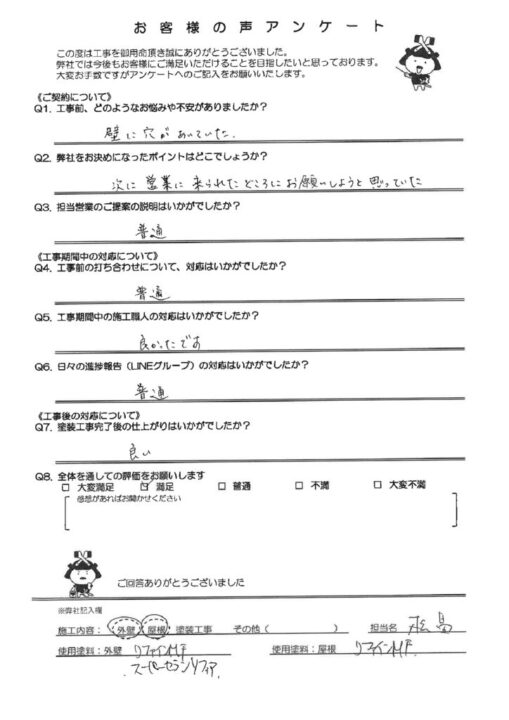 お客様の声アンケート
この度は工事を御用命頂き誠にありがとうございました。
弊社では今後もお客様にご満足いただけることを目指したいと思っております。
大変お手数ですがアンケートへのご記入をお願いいたします。
《ご契約について》
Q1. 工事前、どのようなお悩みや不安がありましたか？
壁に穴があいていた.
Q2. 弊社をお決めになったポイントはどこでしょうか？
次に営業に来られたところにお願いしようと思っていた
Q3. 担当営業のご提案の説明はいかがでしたか？
普通
《工事期間中の対応について》
Q4. 工事前の打ち合わせについて、対応はいかがでしたか？
普通
Q5. 工事期間中の施工職人の対応はいかがでしたか？
良かったです
Q6. 日々の進捗報告（LINEグループ）の対応はいかがでしたか？
普通
《工事後の対応について》
Q7. 塗装工事完了後の仕上がりはいかがでしたか？
良い
Q8. 全体を通しての評価をお願いします
□ 大変満足 ☑ 満足 □ 普通 □ 不満 □ 大変不満
感想があればお聞かせください
ご回答ありがとうございました
※弊社記入欄
施工内容： 外壁 屋根 塗装工事 その他（ ） 担当名
使用塗料：外壁 リファインMF 使用塗料：屋根 リファインMF
スーパーセランリファイア